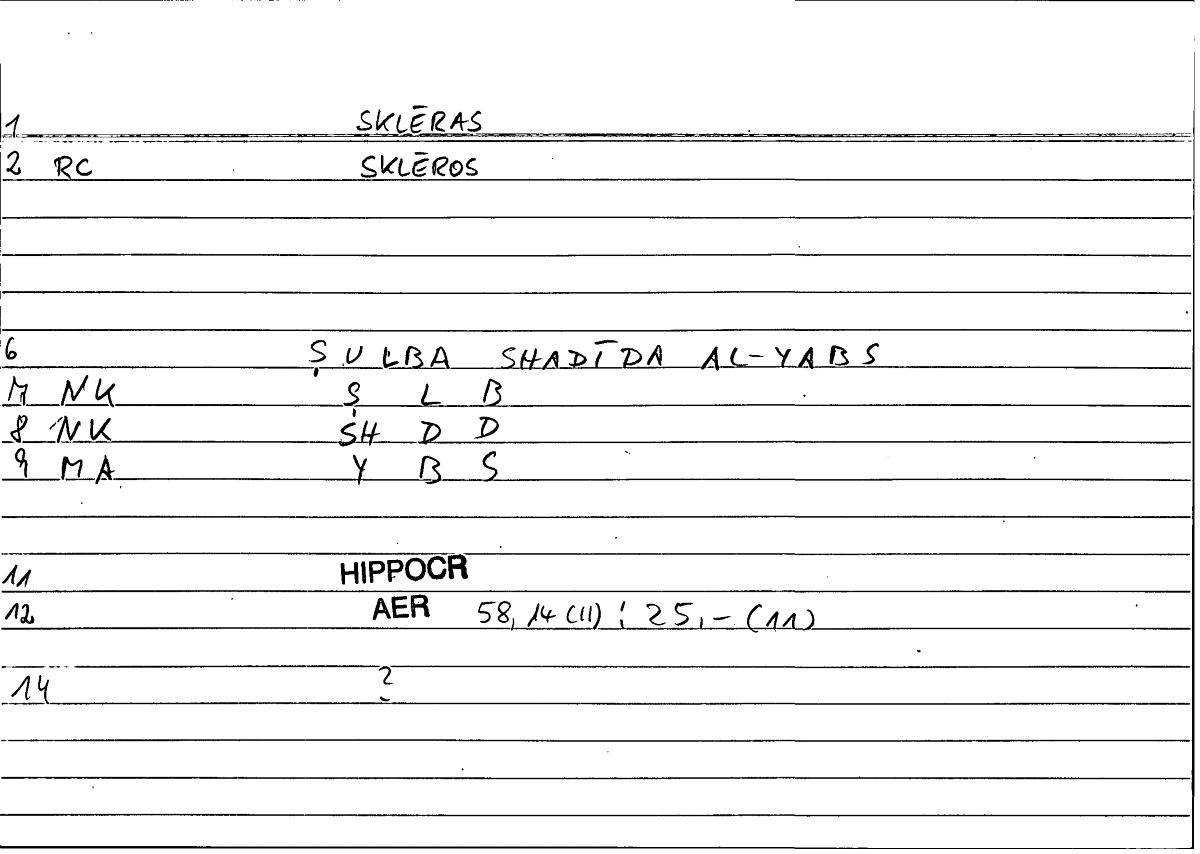 1 SKLĒRAS
2 RC SKLĒROS
6 ṢULBA SHADĪDA AL-YABS
7 NK Ṣ L B
8 NK SH D D
9 MA Y B S
11 HIPPOCR
12 AER 58,14 (11) : 25,- (11)
14 ?